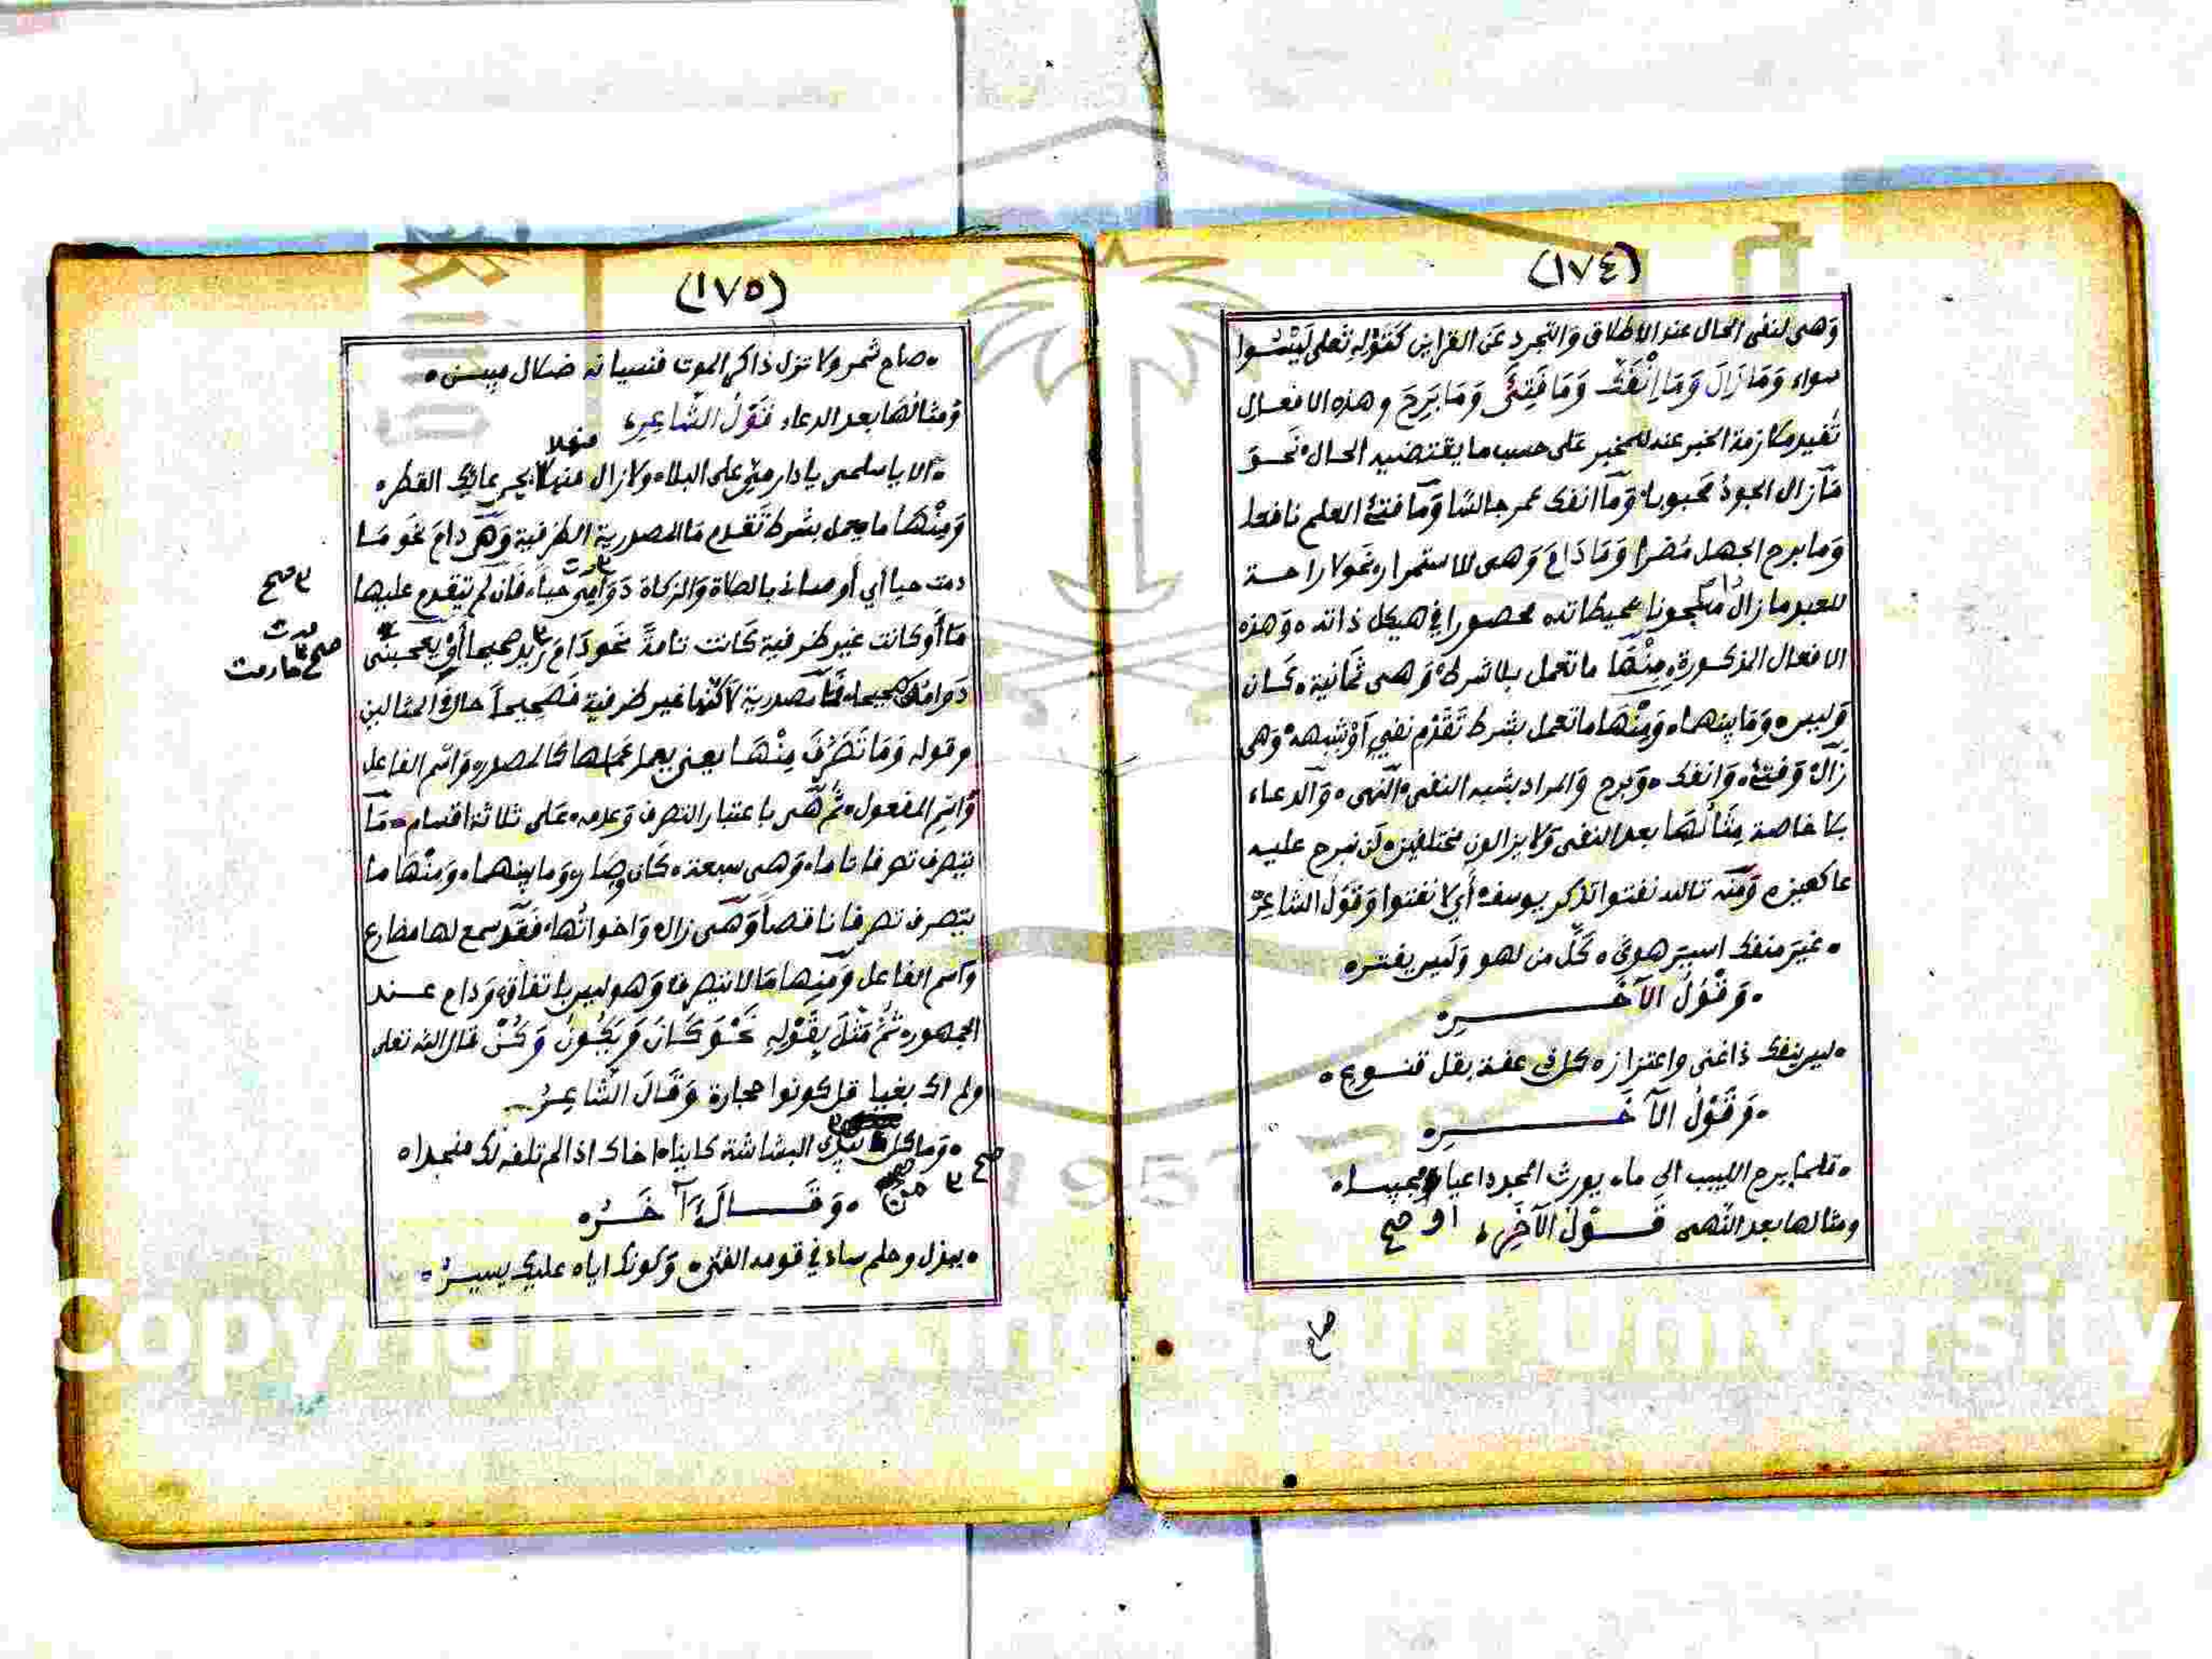 (١٧٤)
وَهى لنفى الحال عند الاطلاق وَالتجرد عَن القراين كَقَوْلِهِ تَعلى لَيْسُوا
سواء وَمَا زَالَ وَمَا انْفَكَّ وَمَا فَتِئَ وَمَا بَرِحَ وهذه الافعال
تُفيد ملازمة الخبر عنه للمخبر عَلى حسب ما يقتضيه الحال نَحو
مَا زال الجودُ محبوبا وَما انفك عمر جالسًا وَما فتئ العلم نافعا
وَما برح الجهل مُضرا وَمَا دَامَ وَهى للاستمرار نحو لا راحة
للعبد ما زال مسجونا بمحيطاته محصورا في هيكل ذاته وَهذه
الافعال المذكورة مِنْهَا ما تعمل بلا شرط وَهى ثمَانية كَان
وَليس وَمَا بينهما وَمِنْهَا ما تعمل بشرط تَقَدُّم نفيٍ أَوْ شِبهه وَهى
زال وَفتئ وَانفك وَبرح وَالمراد بشبه النفى النهى وَالدعاء
بلا خاصة مِثَالُهَا بعد النفى وَلا يزالون مختلفين لَن نبرح عليه
عاكفين وَمنه تالله تفتوا تذكر يوسف أَي لا تفتوا وَقَوْلُ الشاعِرِ
غيرَ منفك اسيَر هوىً كُلُّ من لهو وَليس يفتر
وَقَوْلُ الآخَرِ
ليس ينفك ذا غنى واعتزاز كل ذى عفة بقل قنوع
وَقَوْلُ الآخَرِ
قلما يبرح اللبيب الى ما يورث المجد داعيا مجيبا
ومثالها بعد النهى قَوْلُ الآخَرِ او صح
صاح
(١٧٥)
صاح شمر ولا تزل ذاكر الموت فنسيانه ضلال مبين
وَمثالُهَا بعد الدعاء قَوْلُ الشَّاعِرِ
منهلا
الا يا سلمى يا دار ميّ على البلا ولا زال منهلا بجرعائك القطر
وَمِنْهَا ما يعمل بشرط تَقدم مَا المصدرية الظرفية وَهى دامَ نحو مَا
دمت حيا أي أوصانى بالصلاة وَالزكاة دَوَامِى حياً فَان لم تتقدم عليها
صح
مَا أَو كانت غير ظرفية كَانت تامةً نحو دَامَ زيد صحيحا أَوْ يعجبنى
صح ما دمت
دَوامك صحيحا فما مصدرية لَاكنها غير ظرفية فَصَحِيحاً حال فى المثالين
وقوله وَمَا تَصَرَّفَ مِنْهَا يعنى يعمل عَملها كَالمصدر وَاسم الفاعل
وَاسم المفعول ثُمَّ هى باعتبار التصرف وَعدمه عَلى ثلاثة اقسام مَا
يتصرف تصرفا تاما وَهى سبعة كَان وصَار وَما بينهما وَمنْهَا ما
يتصرف تصرفا ناقصاً وَهى زال وَاخواتُها فَقد سمع لها مضارع
وَاسم الفاعل وَمِنها مَا لا يتصرف وَهو ليس باتفاق وَدام عند
الجمهور ثُمَّ مَثَّلَ بِقَوْلِهِ نَحْوَ كَانَ وَيَكُونُ وَكُنْ قال الله تعلى
ولم اك بغيا قل كونوا حجارة وَقَالَ الشَّاعِرُ
وَما كل يبدى البشاشة كاينا اخاك اذا لم تلفه لك منجدا
صح من
وَقَالَ آخَرُ
ببذل وحلم ساد في قومه الفتى وَكونك اياه عليك يسيرُ